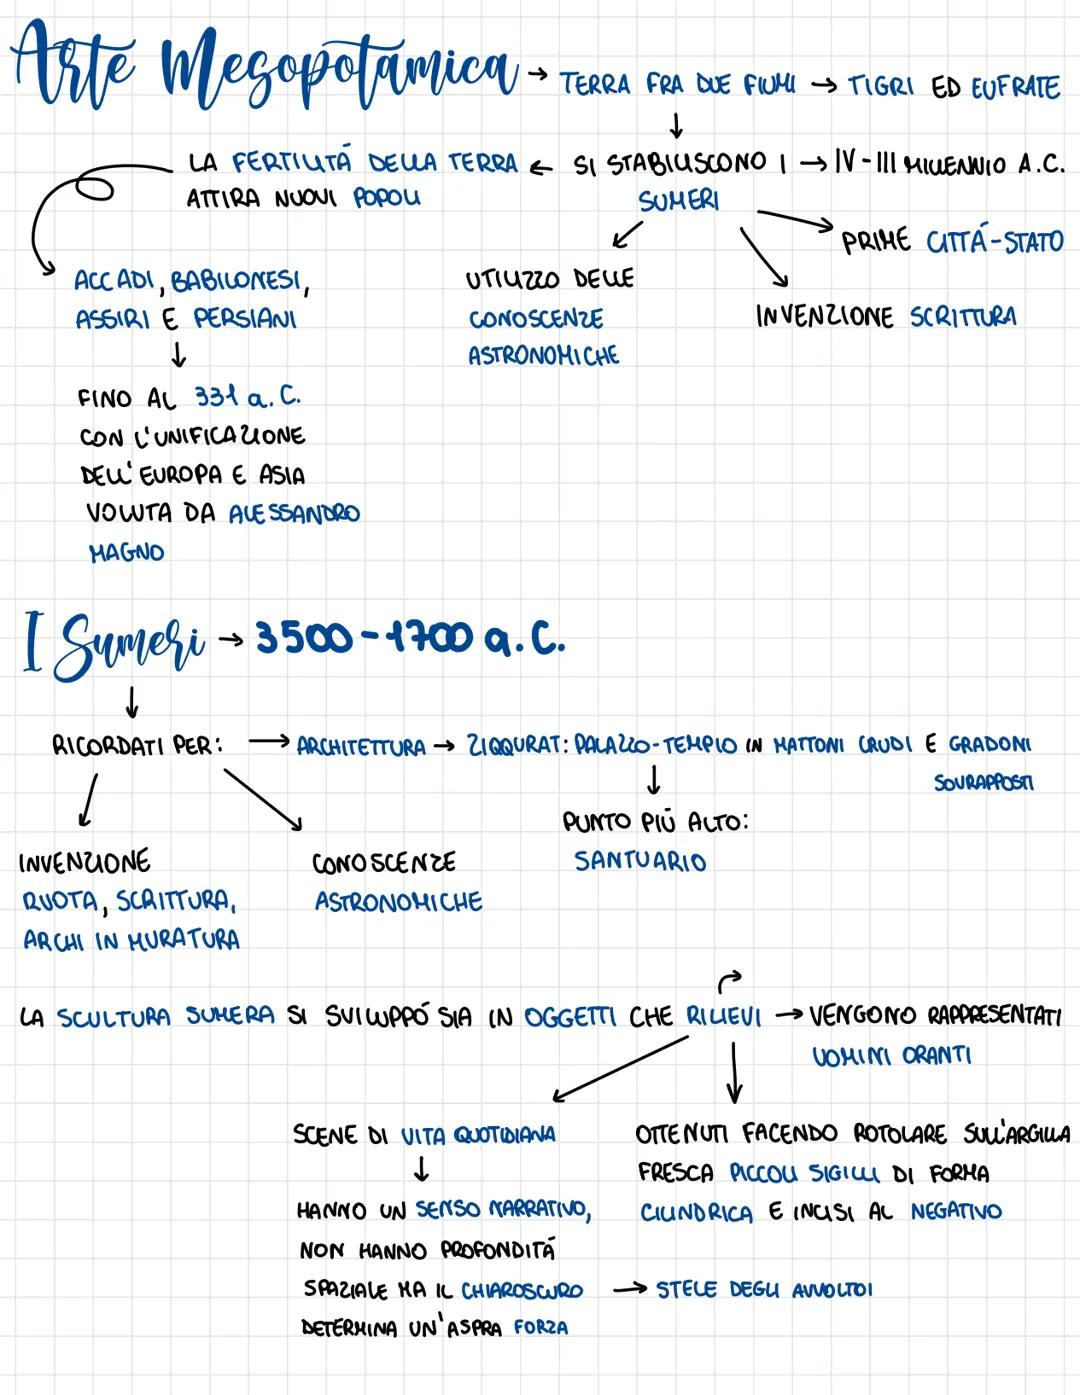 Arte Mesopotamica → TERRA FRA DUE FIUMI → TIGRI ED EUFRATE
LA FERTILITÁ DELLA TERRA ← SI STABILISCONO I → IV-III MILLENNIO A.C.
ATTIRA NUOVI POPOLI
SUMERI
PRIME CITTÁ-STATO
ACCADI, BABILONESI,
ASSIRI E PERSIANI
UTILIZZO DELLE
CONOSCENZE
ASTRONOMICHE
INVENZIONE SCRITTURA
FINO AL 331 a.C.
CON L'UNIFICAZIONE
DELL'EUROPA E ASIA
VOLUTA DA ALESSANDRO
MAGNO
I Sumeri → 3500-1700 a.C.
RICORDATI PER: → ARCHITETTURA → ZIQQURAT: PALAZZO-TEMPIO IN MATTONI CRUDI E GRADONI
SOVRAPPOSTI
PUNTO PIÚ ALTO:
SANTUARIO
INVENZIONE
RUOTA, SCRITTURA,
ARCHI IN MURATURA
CONOSCENZE
ASTRONOMICHE
LA SCULTURA SUMERA SI SVILUPPÓ SIA IN OGGETTI CHE RILIEVI → VENGONO RAPPRESENTATI
UOMINI ORANTI
SCENE DI VITA QUOTIDIANA
HANNO UN SENSO NARRATIVO,
NON HANNO PROFONDITÁ
SPAZIALE MA IL CHIAROSCURO → STELE DEGLI AVVOLTOI
DETERMINA UN'ASPRA FORZA
OTTENUTI FACENDO ROTOLARE SULL'ARGILLA
FRESCA PICCOLI SIGILLI DI FORMA
CILINDRICA E INCISI AL NEGATIVO